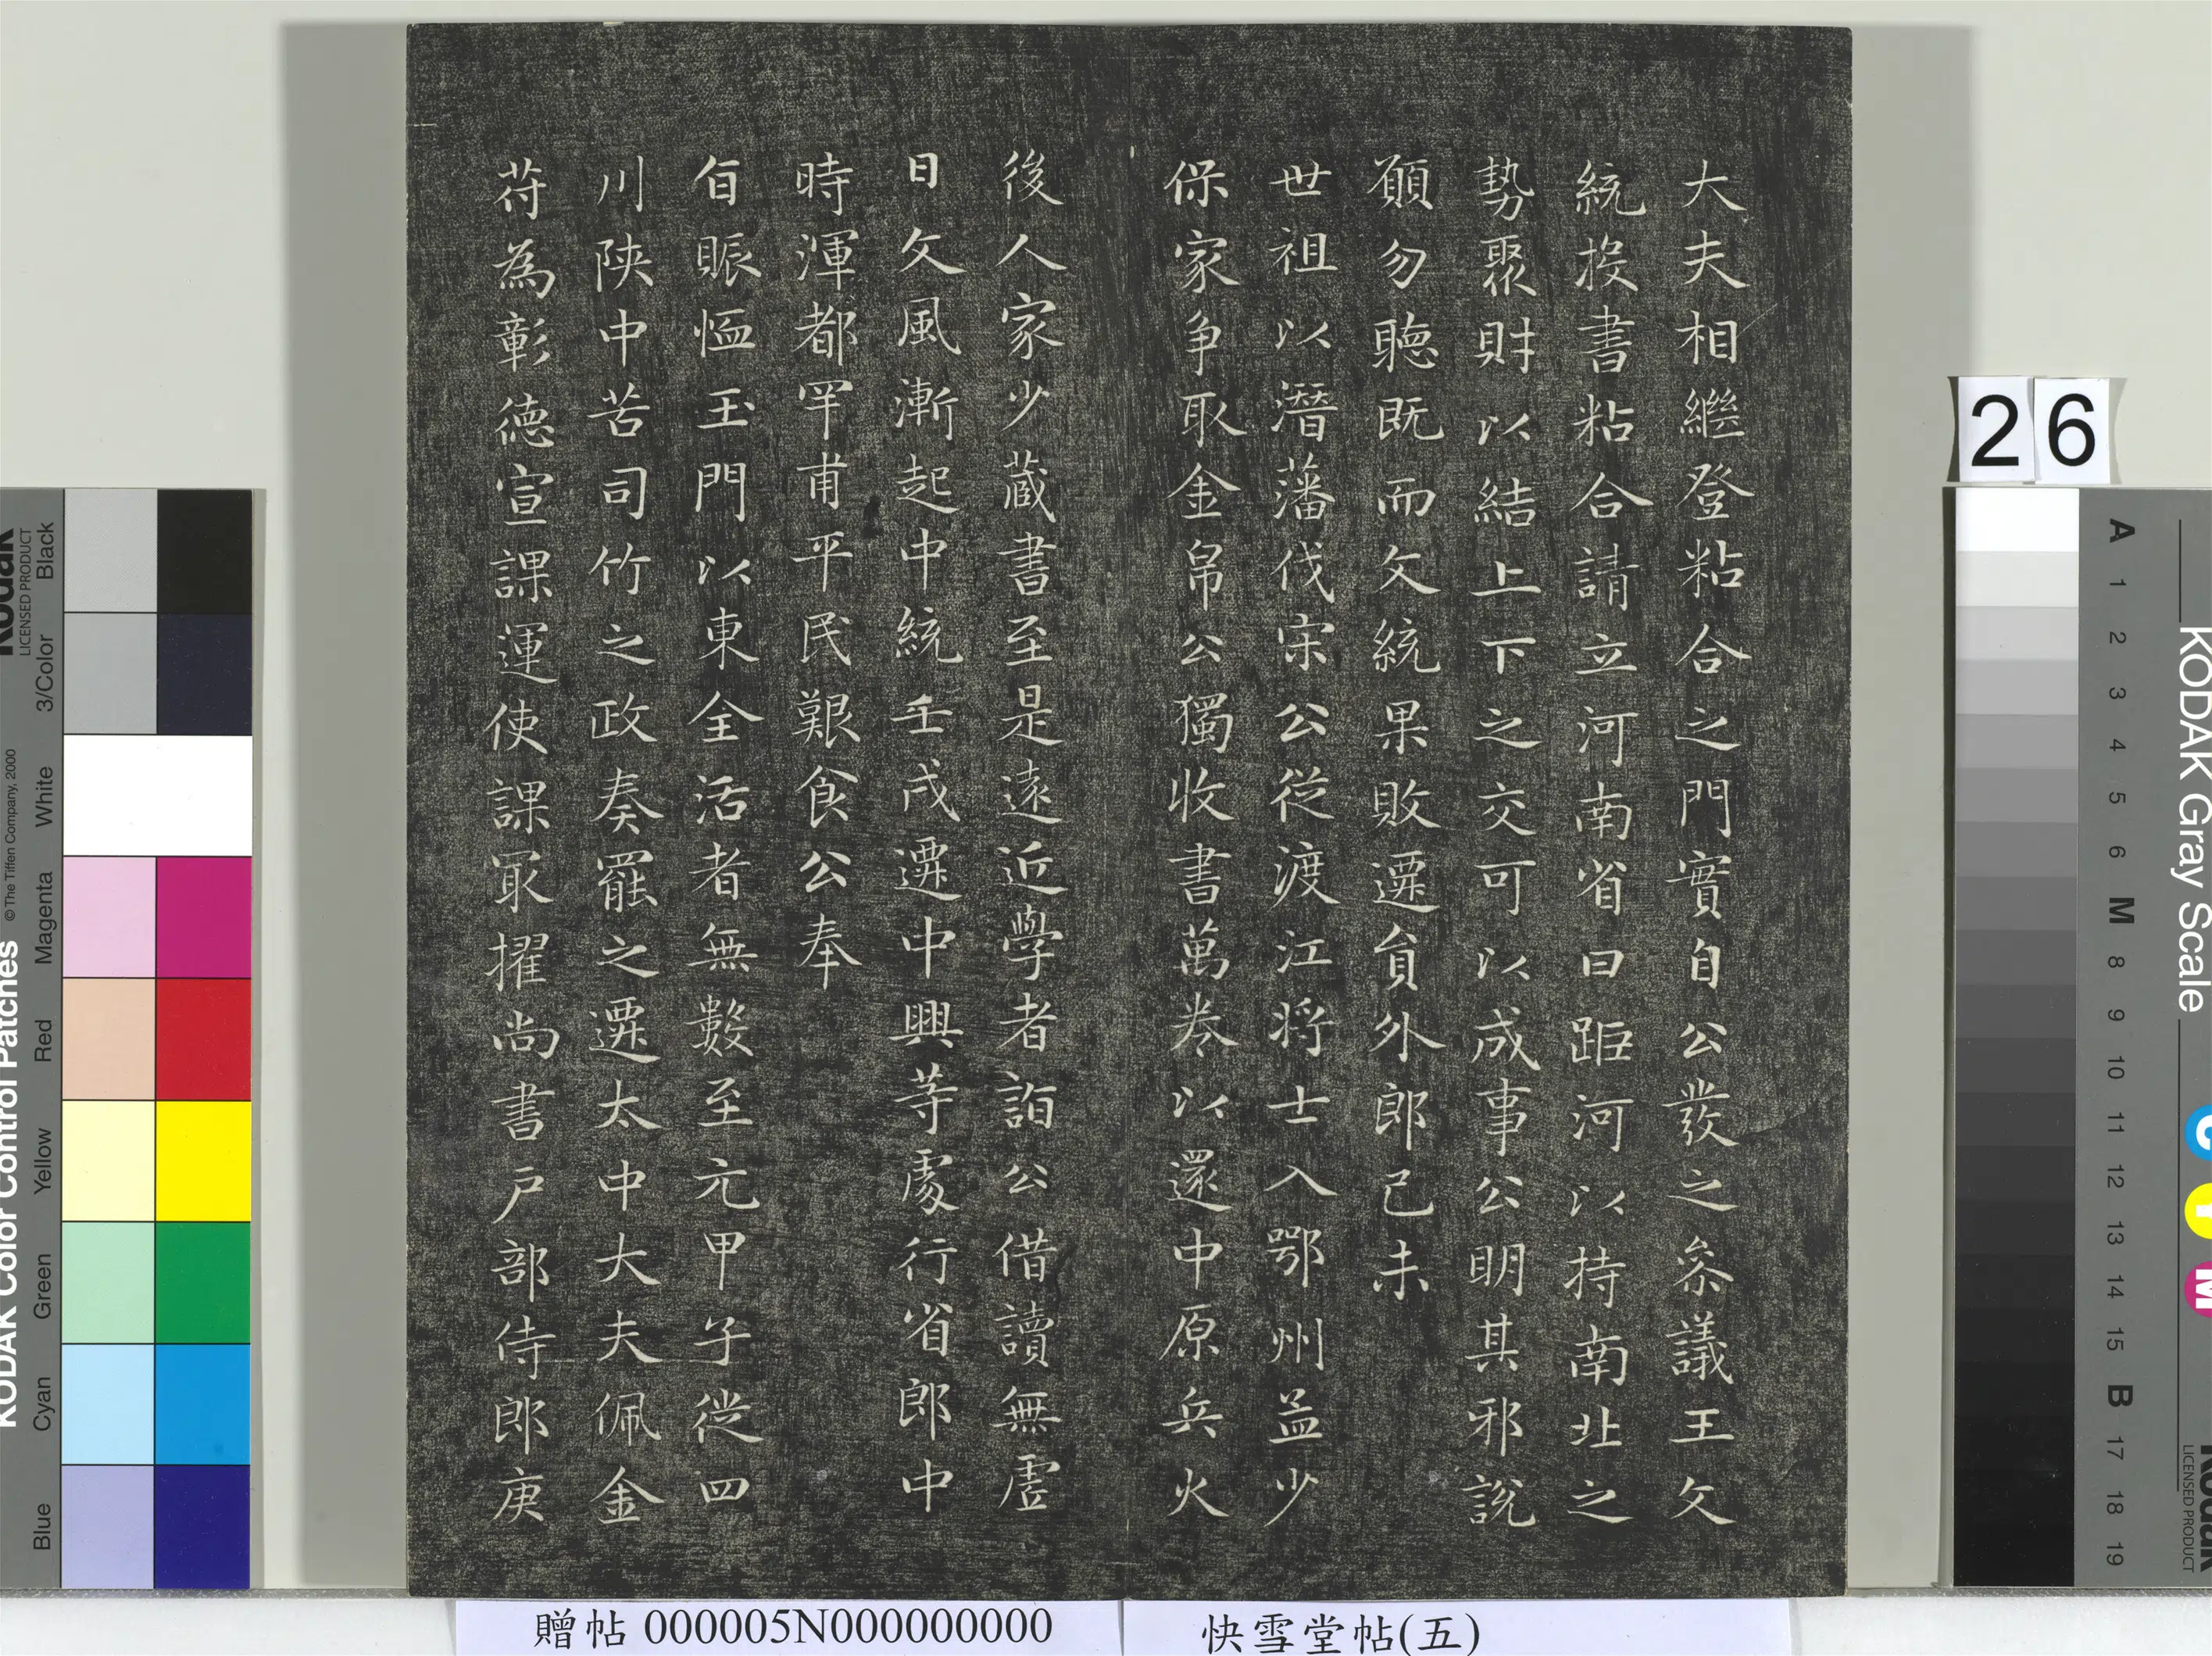 大夫相繼登粘合之門實自公發之叅議王文
統投書粘合請立河南省曰距河以持南北之
勢聚財以結上下之交可以成事公明其邪說
願勿聽既而文統果敗遷貟外郎己未
世祖以潛藩伐宋公從渡江將士入鄂州益少
保家爭取金帛公獨收書萬卷以還中原兵火
後人家少藏書至是遠近學者詣公借讀無虛
日文風漸起中統壬戌遷中興等處行省郎中
時渾都罕甫平民艱食公奉
旨賑恤玉門以東全活者無數至元甲子從四
川陝中苦司竹之政奏罷之遷太中大夫佩金
符為彰德宣課運使課最擢尚書戶部侍郎庚
26
贈帖 000005N000000000
快雪堂帖(五)
KODAK Color Control Patches
© The Tiffen Company, 2000
Kodak
LICENSED PRODUCT
Blue
Cyan
Green
Yellow
Red
Magenta
White
3/Color
Black
KODAK Gray Scale
C
Y
M
Kodak
LICENSED PRODUCT
A
1
2
3
4
5
6
M
8
9
10
11
12
13
14
15
B
17
18
19